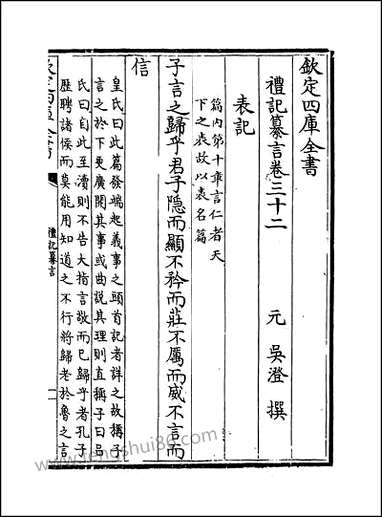 欽定四庫全書
禮記纂言卷三十二
元 吳澄 撰
表記
篇内第十章言仁者天
下之表故以表名篇
子言之歸乎君子隱而顯不矜而莊不厲而威不言而
信
皇氏曰此篇發端起義事之頭首記者詳之故稱子
言之於下更廣開其事或曲說其理則直稱子曰呂
氏曰自此至瀆則不告大指言敬而已歸乎者孔子
歷聘諸侯而莫能用知道之不行將歸老於魯之言
禮記纂言
一
www.fengshui86.com